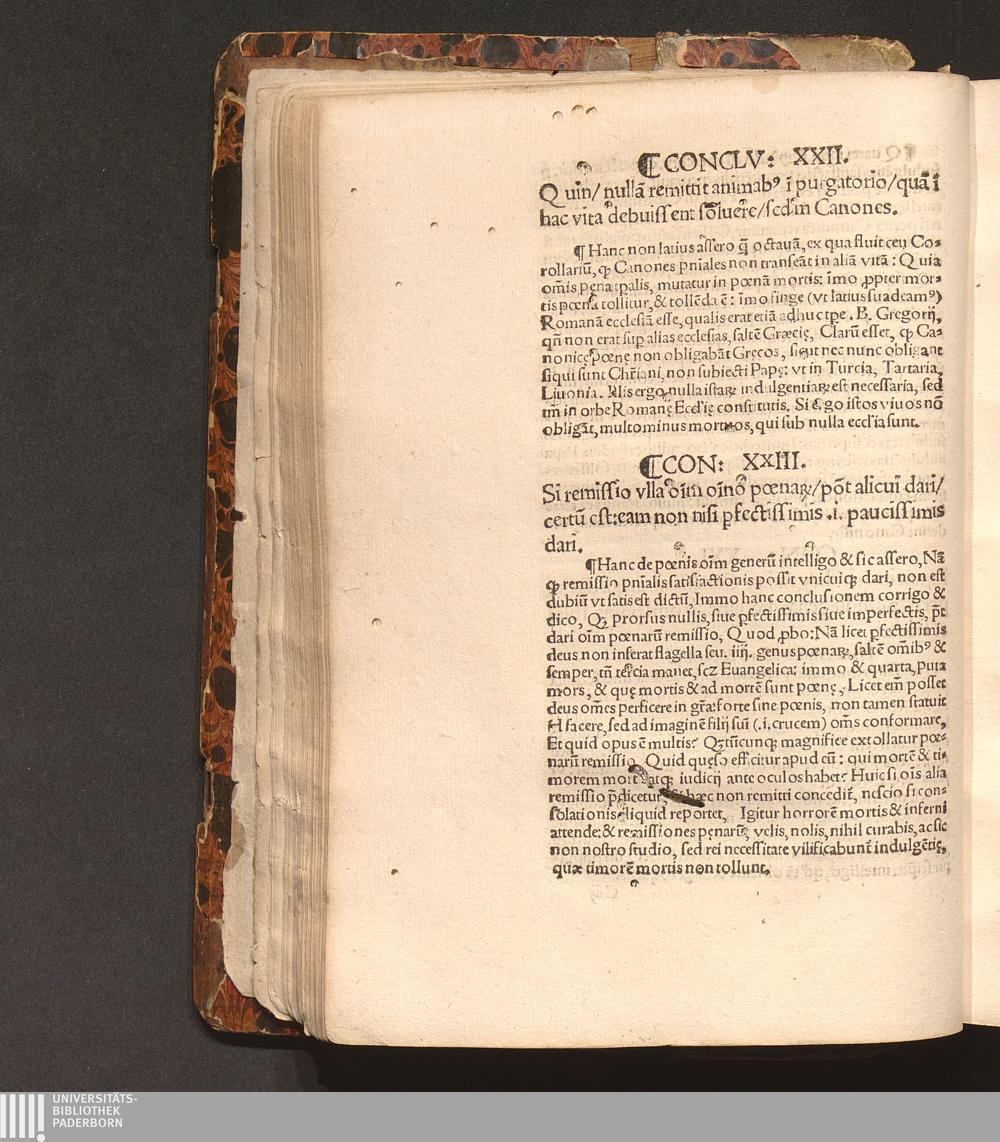 ⸿ CONCLV: XXII.
Quin/ nullā remittit animabꝰ ī purgatorio/quā ī
hac vita debuissent soluere/secd'm Canones.
¶ Hanc non latius assero q̄ octauā, ex qua fluit ceu Co-
rollariū, ꝙ Canones pn̄iales non transeāt in aliā vitā: Quia
om̄is pena tpalis, mutatur in pœnā mortis: imo ꝓpter mor-
tis pœnā tollitur, & tollēda ē: imo finge (vt latius suadeamꝰ)
Romanā ecclesiā esse, qualis erat etiā adhuc tpe. B. Gregorij,
qn̄ non erat sup alias ecclesias, saltē Græcię, Clarū esset, ꝙ Ca-
nonicę pœnę non obligabāt Gręcos, sicut nec nunc obligant
siqui sunt Chr̄iani, non subiecti Papę: vt in Turcia, Tartaria,
Liuonia. Illis ergo nulla istaꝝ indulgentiaꝝ est necessaria, sed
tm̄ in orbe Romanę Eccl'ię constitutis. Si ergo istos viuos nō
obligāt, multominus mortuos, qui sub nulla eccl'ia sunt.
⸿ CON: XXIII.
Si remissio vlla oīm oīno pœnaꝝ/pōt alicui dari/
certū est: eam non nisi ꝑfectissimis .i. paucissimis
dari.
¶ Hanc de pœnis oīm generū intelligo & sic assero, Nā
ꝙ remissio pn̄ialis satisfactionis possit vnicuiqꝫ dari, non est
dubiū vt satis est dictū, Immo hanc conclusionem corrigo &
dico, Qꝫ prorsus nullis, siue ꝑfectissimis siue imperfectis, p̄t
dari oīm pœnarū remissio, Quod ꝓbo: Nā licet ꝑfectissimis
deus non inferat flagella seu. iiij. genus pœnaꝝ, saltē om̄ibꝰ &
semper, tn̄ tertia manet, scꝫ Euangelica: immo & quarta, puta
mors, & quę mortis & ad mortē sunt pœnę, Licet em̄ posset
deus om̄es perficere in gr̄a: forte sine pœnis, non tamen statuit
H facere, sed ad imaginē filij sui (.i. crucem) om̄s conformare,
Et quid opus ē multis? Qꝫtūcunqꝫ magnifice extollatur pœ-
narū remissio, Quid quęso efficitur apud eū: qui mortē & ti-
morem mort atqꝫ iudicij ante oculos habet? Huic si oīs alia
remissio p̄dicetur, si hæc non remitti concedit̄, nescio si con-
solationis aliquid reportet, Igitur horrorem mortis & inferni
attende: & remissiones pęnarū, velis, nolis, nihil curabis, ac sic
non nostro studio, sed rei necessitate vilificabunt̄ indulgētię,
quæ timorē mortis non tollunt.
UNIVERSITÄTS-
BIBLIOTHEK
PADERBORN